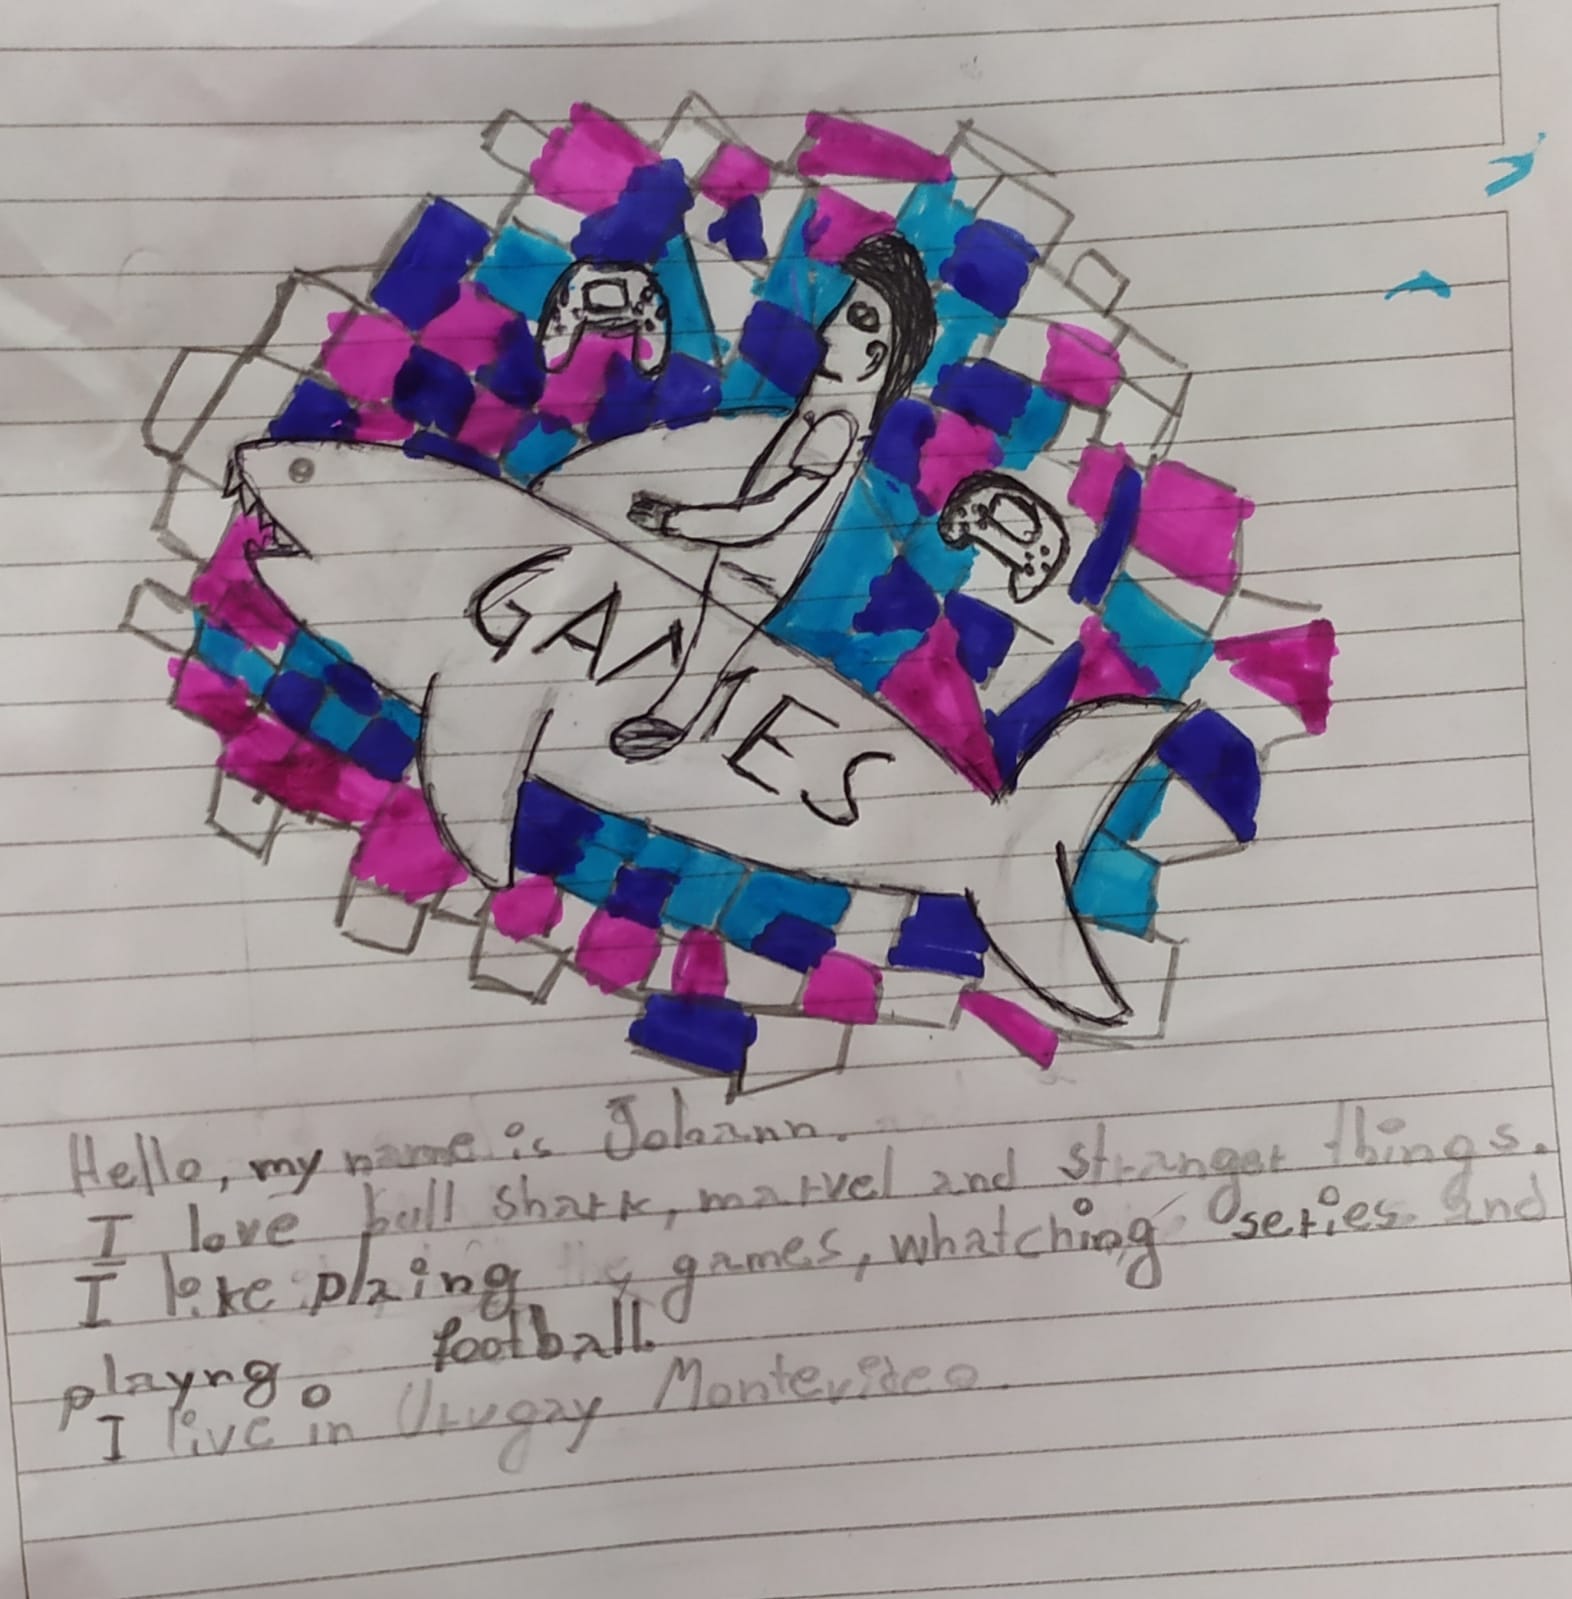 GAMES
Hello, my name is Johann.
I love bull shark, marvel and stranger things.
I like plaing games, whatching series and
playng football.
I live in Urugay Montevideo.